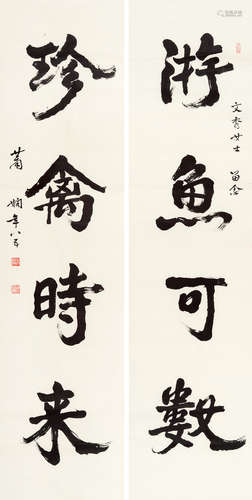 游魚可數
女士 留念
珍禽時来
蕭嫻年八五